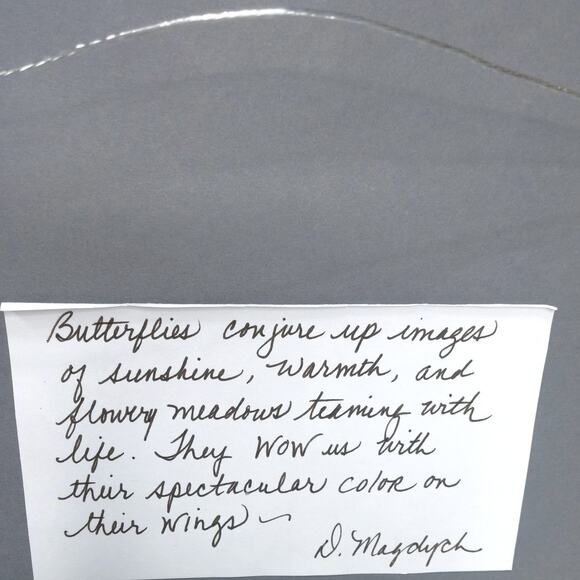 Butterflies conjure up images
of sunshine, warmth, and
flowery meadows teaming with
life. They WOW us with
their spectacular color on
their wings ~
D. Magdych